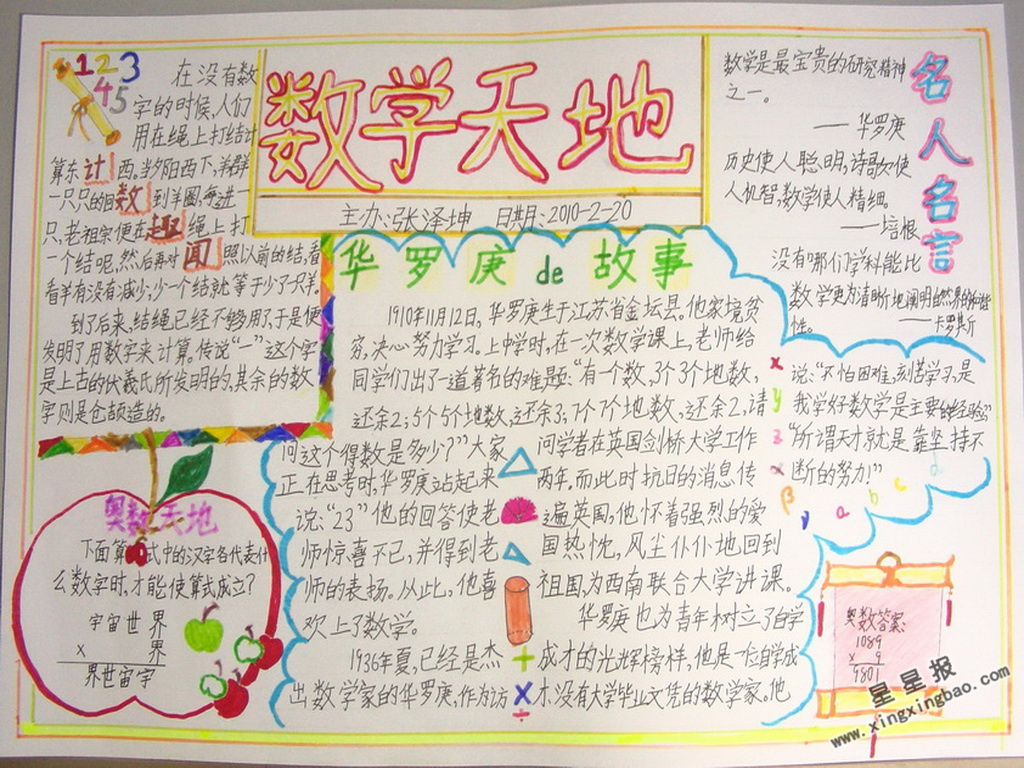 数学天地
主办:张泽坤 日期:2010-2-20
1 2 3
4 5
在没有数
字的时候,人们
用在绳上打结计
算东 计 西。当夕阳西下,羊群
一只只的回 数 到羊圈,每进一
只,老祖宗便在 趣 绳上打
一个结呢,然后再对 闻 照以前的结,看
看羊有没有减少;少一个结就等于少了一只羊。
到了后来,结绳已经不够用了,于是便
发明了用数字来计算。传说“一”这个字
是上古的伏羲氏所发明的,其余的数
字则是仓颉造的。
名人名言
数学是最宝贵的研究精神
之一。
——华罗庚
历史使人聪明,诗歌使
人机智,数学使人精细。
——培根
没有哪们学科能比
数学更为清晰地阐明自然界的和谐
性。 ——卡罗斯
华罗庚de故事
1910年11月12日,华罗庚生于江苏省金坛县。他家境贫
穷,决心努力学习。上中学时,在一次数学课上,老师给
同学们出了一道著名的难题:“有一个数,3个3个地数,
还余2;5个5个地数,还余3;7个7个地数,还余2,请
问这个得数是多少?”大家
正在思考时,华罗庚站起来
说:“23”他的回答使老
师惊喜不已,并得到老
师的表扬。从此,他喜
欢上了数学。
1936年夏,已经是杰
出数学家的华罗庚,作为访
问学者在英国剑桥大学工作
两年。而此时抗日的消息传
遍英国,他怀着强烈的爱
国热忱,风尘仆仆地回到
祖国,为西南联合大学讲课。
华罗庚也为青年树立了自学
成才的光辉榜样,他是一位自学成
才没有大学毕业文凭的数学家。他
说:“不怕困难,刻苦学习,是
我学好数学是主要的经验。”
“所谓天才就是靠坚持不
断的努力!”
x
y
3
x
β
γ
a
b
c
d
+
x
÷
奥数天地
下面算式中的汉字各代表什
么数字时,才能使算式成立?
宇宙世界
x 界
界世宙宇
奥数答案:
1089
x 9
9801
星星报
www.xingxingbao.com